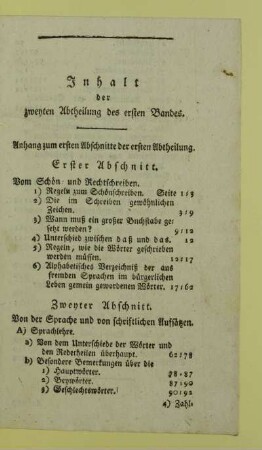 Inhalt
der
zweyten Abtheilung des ersten Bandes.
Anhang zum ersten Abschnitte der ersten Abtheilung.
Erster Abschnitt.
Vom Schön- und Rechtschreiben.
1) Regeln zum Schönschreiben. Seite 1:3
2) Die im Schreiben gewöhnlichen
Zeichen. 3:9
3) Wann muß ein großer Buchstabe ge-
setzt werden? 9:12
4) Unterschied zwischen daß und das. 12
5) Regeln, wie die Wörter geschrieben
werden müssen. 12:17
6) Alphabetisches Verzeichniß der aus
fremden Sprachen im bürgerlichen
Leben gemein gewordenen Wörter. 17:62
Zweyter Abschnitt.
Von der Sprache und von schriftlichen Aufsätzen.
A) Sprachlehre.
a) Von dem Unterschiede der Wörter und
den Redetheilen überhaupt. 62:78
b) Besondere Bemerkungen über die
1) Hauptwörter. 78:87
2) Beywörter. 87:90
3) Geschlechtswörter. 90:92
4) Zahl-